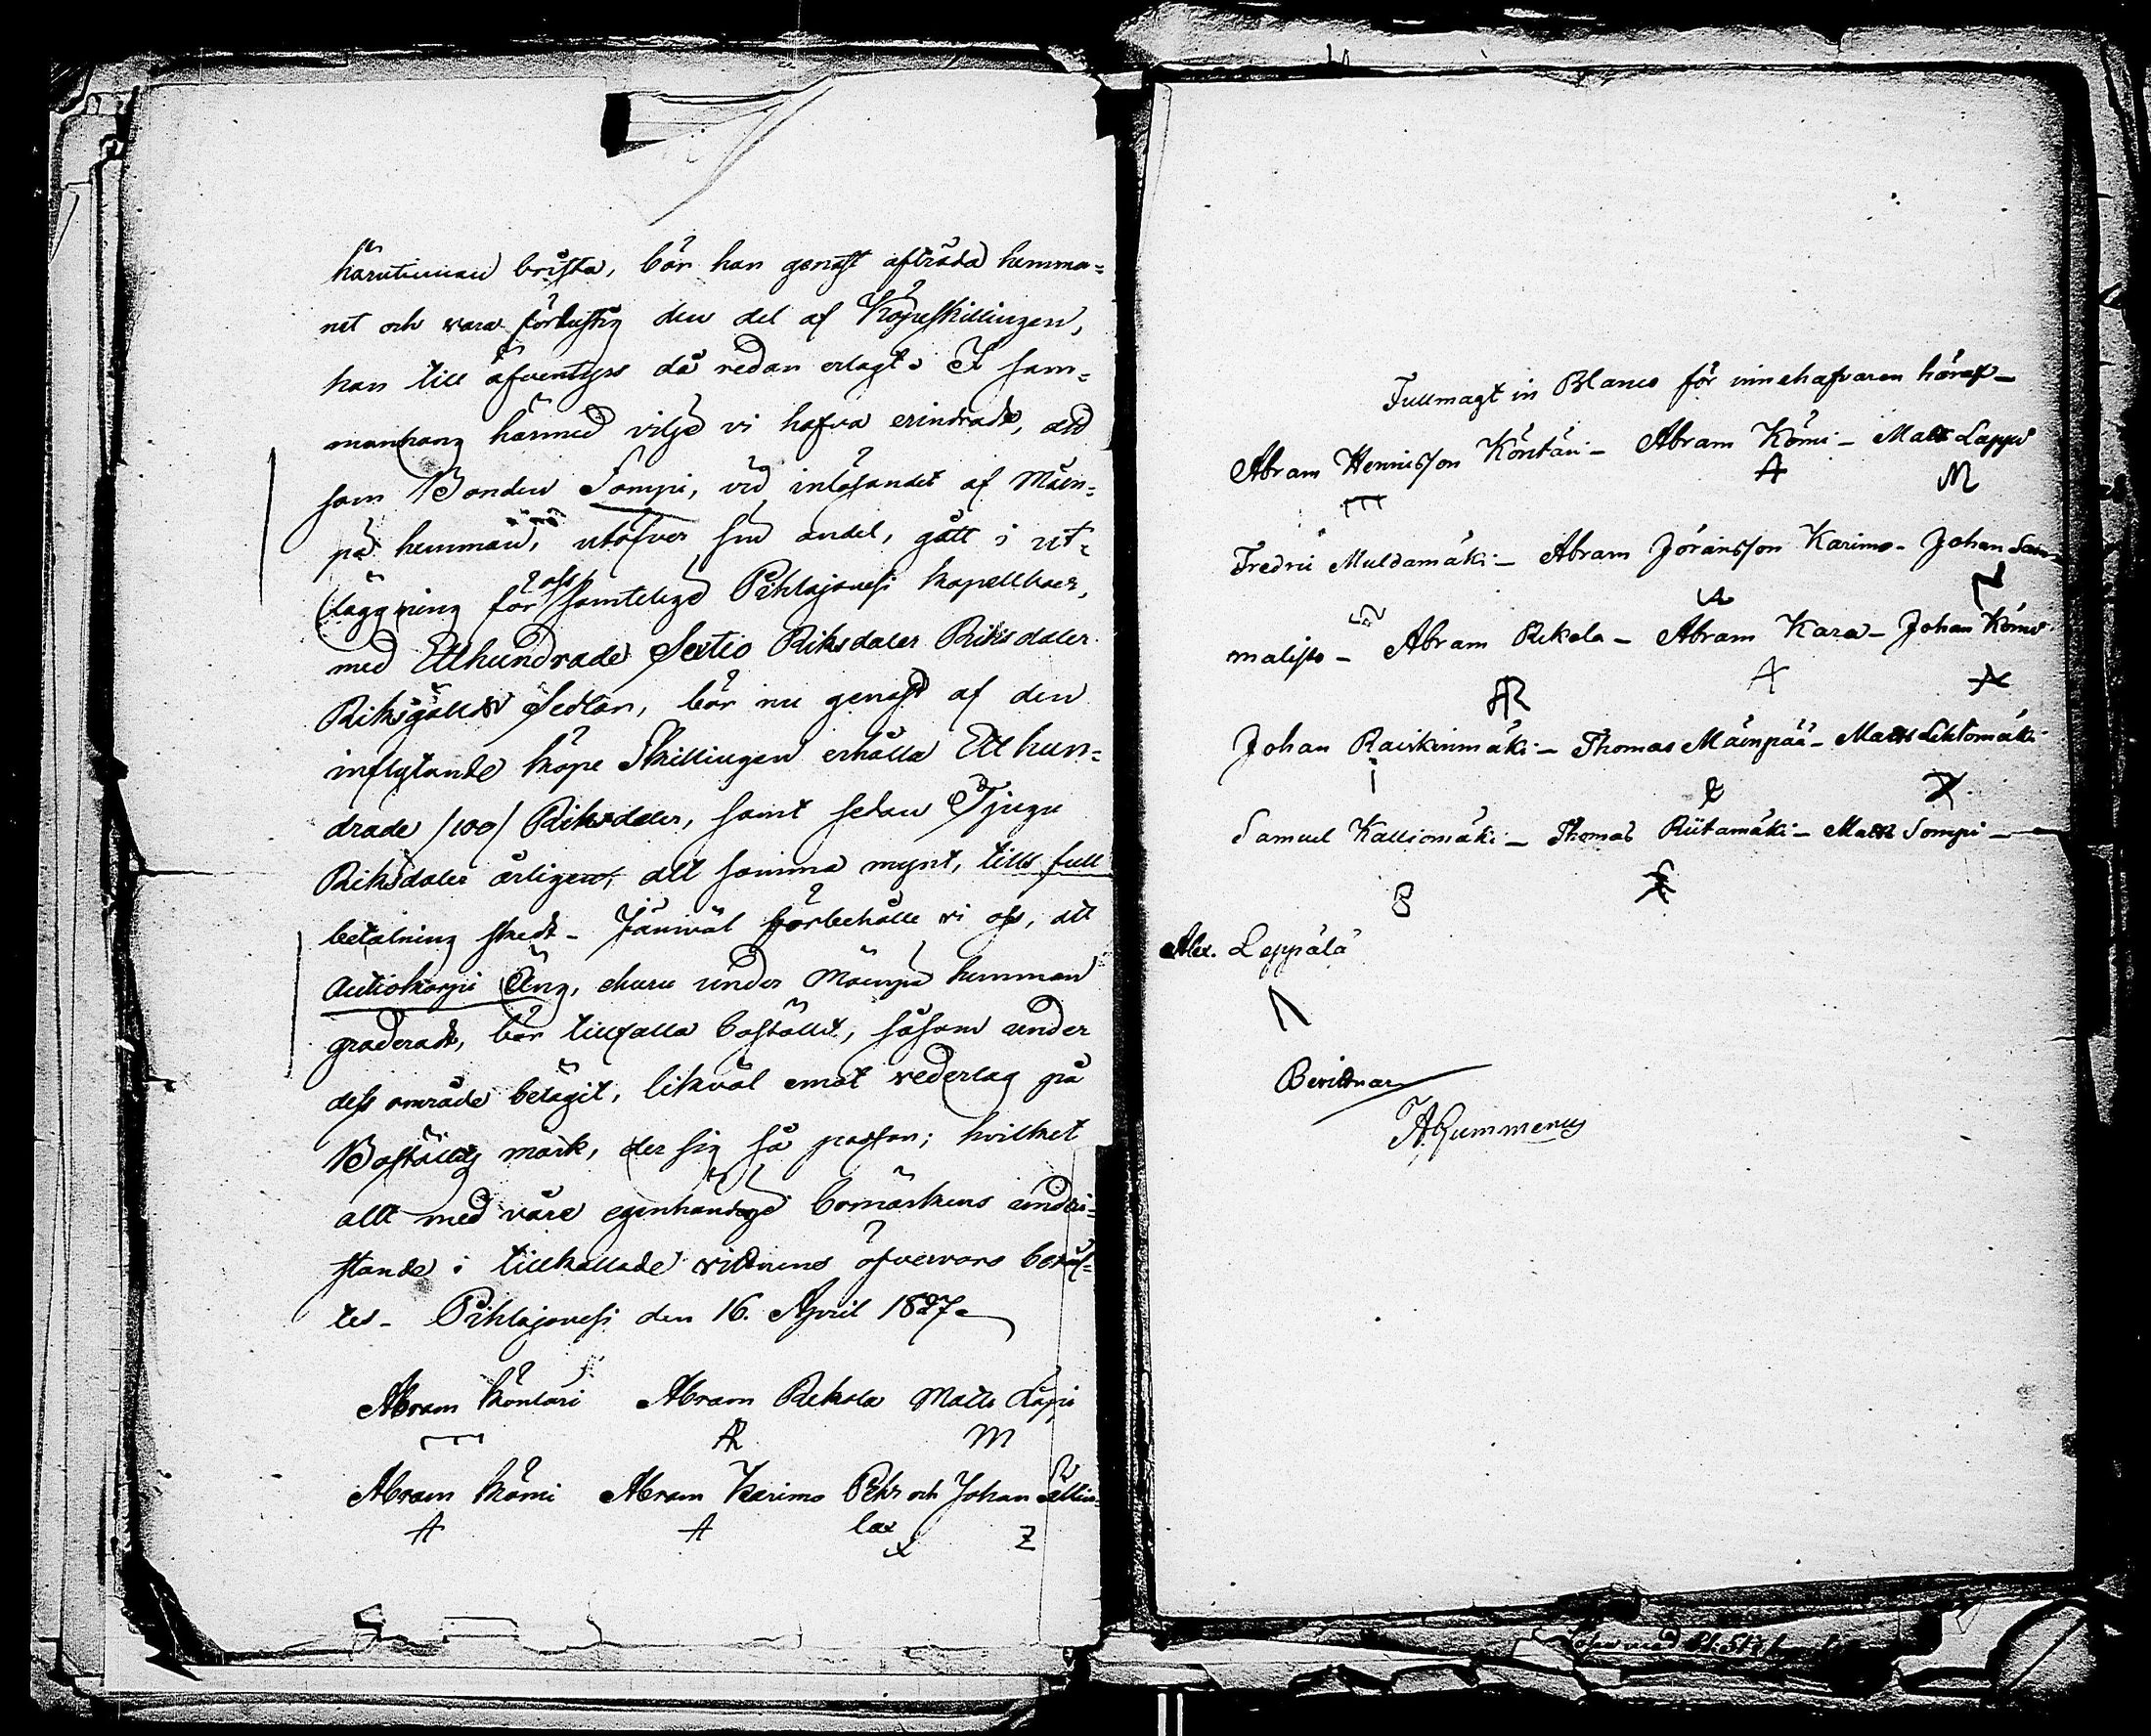 härutinnan brista, bör han genast afträda hemma=
net och vara förlustig den del af Köpeskillingen,
han till äfventyrs då redan erlagt. I sam=
manhang härmed vilje vi hafva erindradt, att
som Bonden Sompi, vid inlösandet af Mäen=
pä hemman, utöfver sin andel, gått i ut=
läggning för oss samtelige Pihlajavesi kapellboer,
med Etthundrade Sextio Riksdaler Riksdaler
Riksgälds Sedlar, bör nu genast af den
inflytande köpe Skillingen erhålla Ett hun=
drade /100/ Riksdaler, samt sedan Tjugu
Riksdaler årligen, allt samma mynt, tills full
betalning skedt - Jämväl förbehålle vi oss, att
Autiokorpi Äng, ehuru under Mäenpä hemman
graderadt, bör tillfalla bostället, såsom under
dess område belägit, likväl emot vederlag på
Boställets mark, der sig så passar; hvilket
allt med våre egenhändige bomärkens undri=
tande i tillkallade vittnens öfvervaro bekräf=
tes - Pihlajavesi den 16. April 1827.
Abram Köntäri Abram Rekola Matts Lapi
AR M
Abram Kömi Abram Karimo Pehr och Johan Sällin=
A A lax Z
Fullmagt in Blanco för innehafvaren häraf -
Abram Hennisson Köntäri - Abram Kömi - Matts Lappi
A M
Fredric Muldamäki - Abram Jöransson Karimo - Johan Sam=
malisto - Abram Rekola - Abram Kara - Johan Kömi
AR A
Johan Raiskinmäki - Thomas Mäinpää - Matts Lehtomäki
Samuel Kalliomäki - Thomas Riitamäki - Matts Sompi -
Alex. Leppälä
Bevittnar
Gummerus